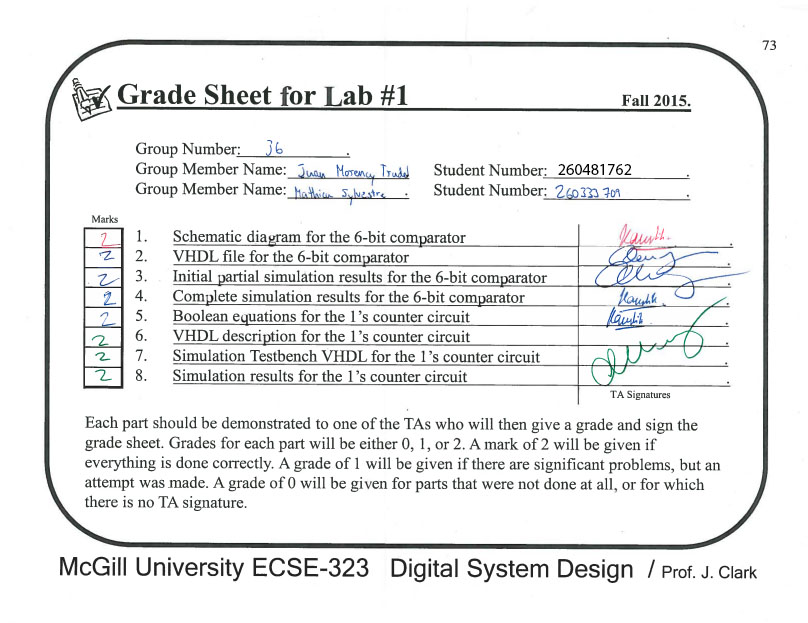 73
Grade Sheet for Lab #1 Fall 2015.
Group Number: 36 .
Group Member Name: Juan Morency Trudel Student Number: 260481762 .
Group Member Name: Mathieu Sylvestre . Student Number: 260333709 .
Marks
2 1. Schematic diagram for the 6-bit comparator .
2 2. VHDL file for the 6-bit comparator .
2 3. Initial partial simulation results for the 6-bit comparator .
2 4. Complete simulation results for the 6-bit comparator .
2 5. Boolean equations for the 1's counter circuit .
2 6. VHDL description for the 1's counter circuit .
2 7. Simulation Testbench VHDL for the 1's counter circuit .
2 8. Simulation results for the 1's counter circuit .
TA Signatures
Each part should be demonstrated to one of the TAs who will then give a grade and sign the
grade sheet. Grades for each part will be either 0, 1, or 2. A mark of 2 will be given if
everything is done correctly. A grade of 1 will be given if there are significant problems, but an
attempt was made. A grade of 0 will be given for parts that were not done at all, or for which
there is no TA signature.
McGill University ECSE-323 Digital System Design / Prof. J. Clark